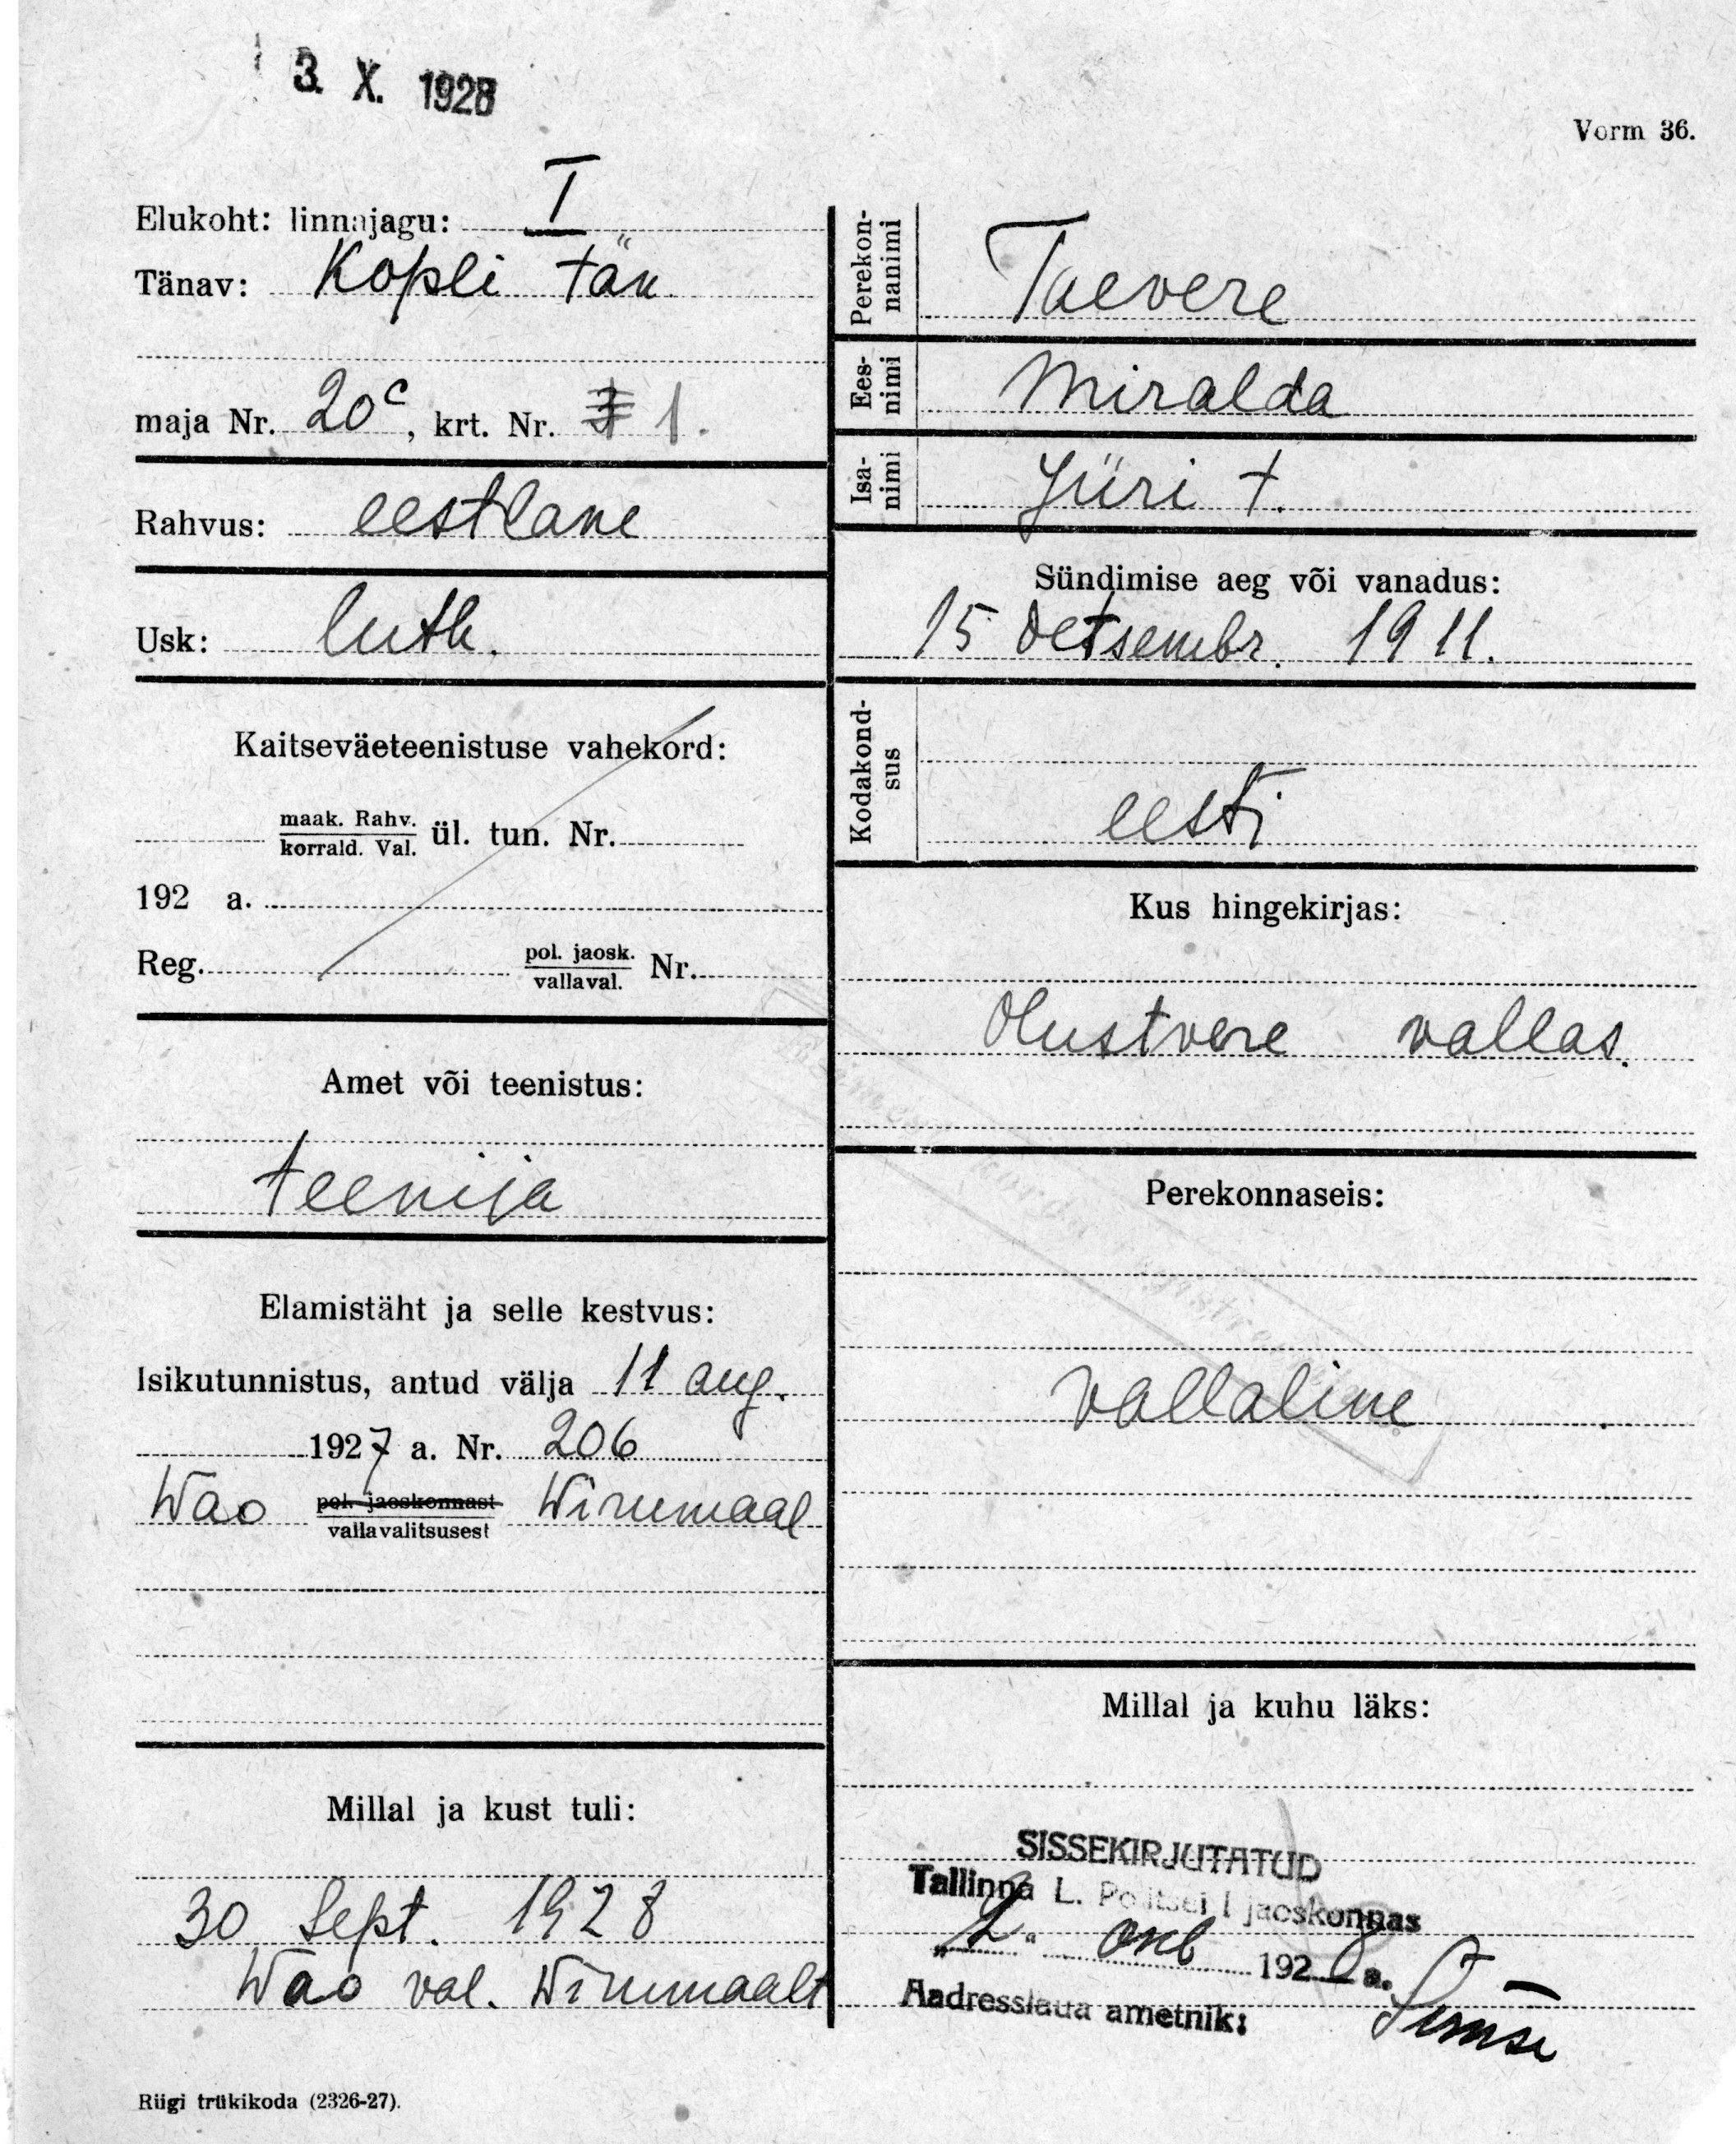 3. X. 1928
Vorm 36.
Elukoht: linnajagu: I
Tänav: Kopli tän.
maja Nr. 20c, krt. Nr. 1.
Rahvus: eestlane
Usk: luth.
Kaitseväeteenistuse vahekord:
maak. Rahv.
korrald. Val. ül. tun. Nr.
192 a.
Reg. pol. jaosk.
vallaval. Nr.
Amet või teenistus:
teenija
Elamistäht ja selle kestvus:
Isikutunnistus, antud välja 11 aug.
1927 a. Nr. 206
Wao pol. jaoskonnast Wirumaal
vallavalitsusest
Millal ja kust tuli:
30 Sept. 1928
Wao val. Wirumaalt
Riigi trükikoda (2326-27).
Perekon-
nanimi
Taevere
Ees-
nimi
Miralda
Isa-
nimi
Jüri t.
Sündimise aeg või vanadus:
15 Detsembr. 1911.
Kodakond-
sus
eesti
Kus hingekirjas:
Olustvere vallas.
Perekonnaseis:
vallaline
Millal ja kuhu läks:
SISSEKIRJUTATUD
Tallinna L. Politsei I jaoskonnas
"2" okt 1928 a.
Aadresslaua ametnik: